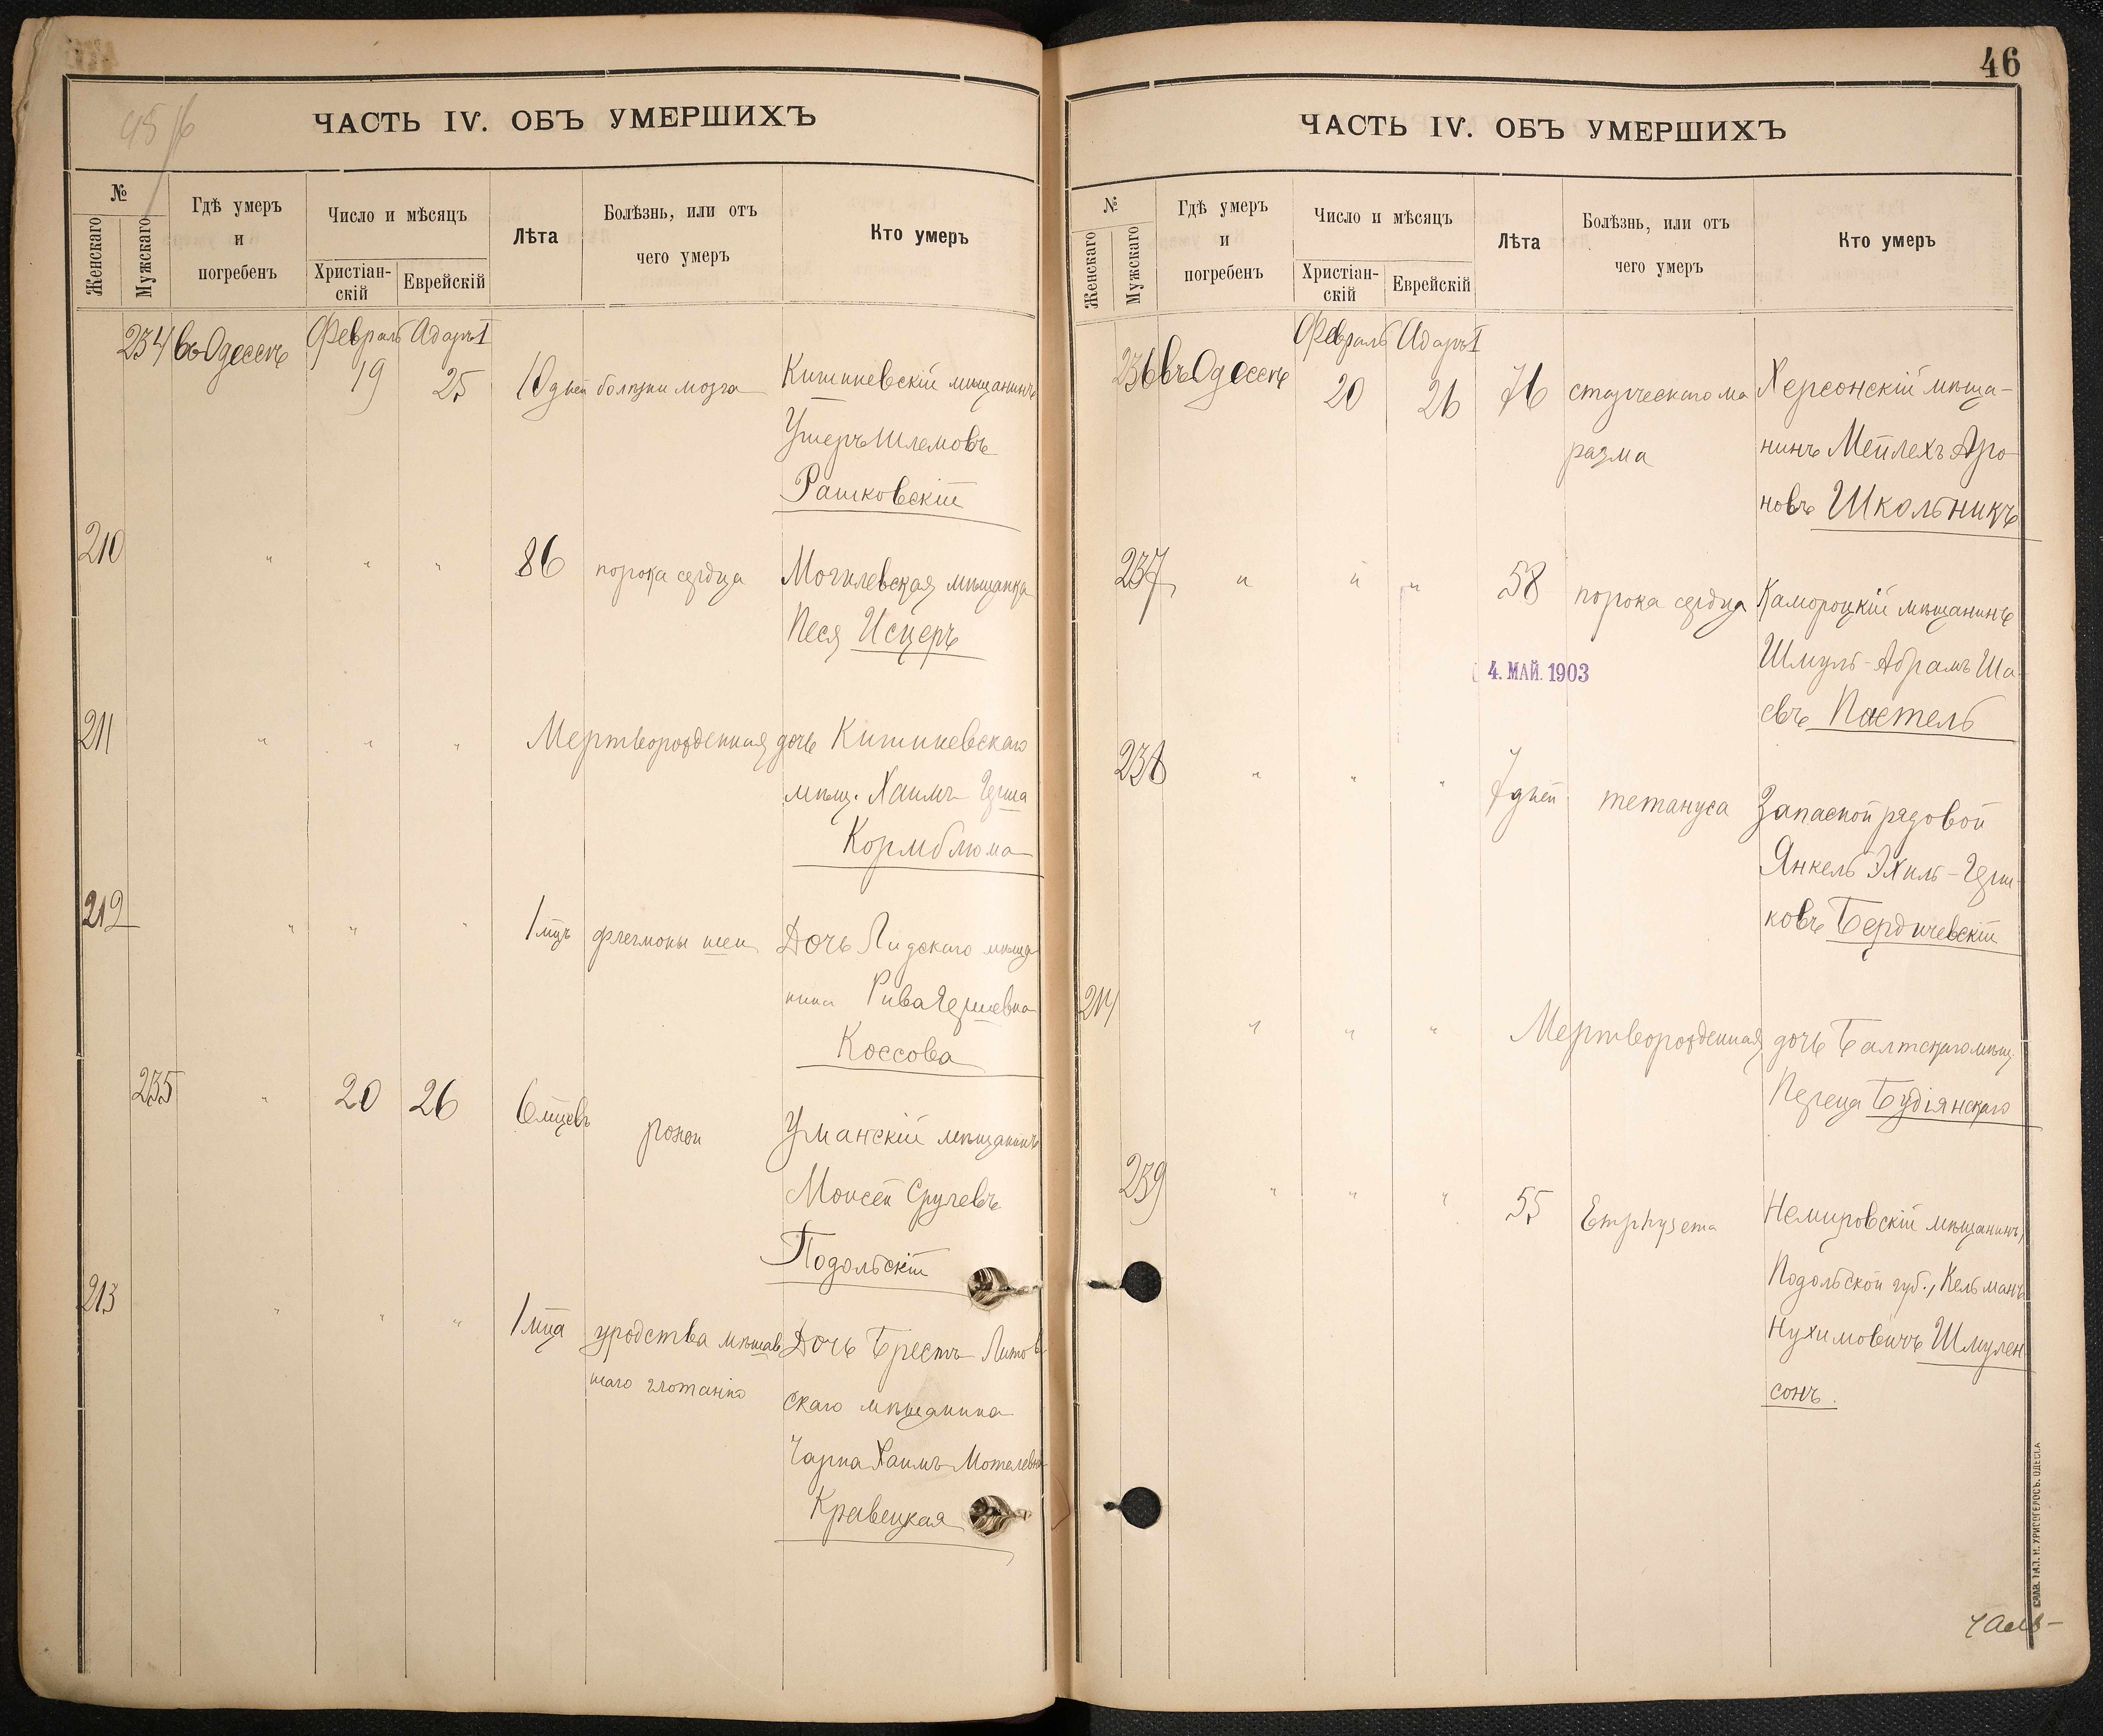 45/6
ЧАСТЬ IV. ОБЪ УМЕРШИХЪ
№
Женскаго
Мужскаго
Гдѣ умеръ
и
погребенъ
Число и мѣсяцъ
Христіан-
скій
Еврейскій
Лѣта
Болѣзнь, или отъ
чего умеръ
Кто умеръ
234 въ Одессѣ Февраль Адаръ I
19 25 10 дней болѣзни мозга Кишиневскій мѣщанинъ
Ушеръ Шлемовъ
Рашковскій
210 " " " 86 порока сердца Могилевская мѣщанка
Песя Исцеръ
211 " " " Мертворожденная дочь Кишиневскаго
мѣщ. Хаимъ Герша
Кормблюма
212 " " " 1 мцъ флегмоны шеи Дочь Лидскаго мѣща
нина Рива Гершевна
Коссова
235 " 20 26 6 мцевъ рожи Уманскій мѣщанинъ
Моисей Срулевъ
Подольскій
213 " " " 1 мца уродства мѣшав Дочь Брестъ Литов
шаго глотанію скаго мѣщанина
Чарна Хаимъ Мотелевна
Кравецкая
46
ЧАСТЬ IV. ОБЪ УМЕРШИХЪ
№
Женскаго
Мужскаго
Гдѣ умеръ
и
погребенъ
Число и мѣсяцъ
Христіан-
скій
Еврейскій
Лѣта
Болѣзнь, или отъ
чего умеръ
Кто умеръ
236 въ Одессѣ Февраль Адаръ I
20 26 76 старческаго ма Херсонскій мѣща-
разма нинъ Мейлехъ Аро
новъ Школьникъ
237 " " " 58 порока сердца Камороцкій мѣщанинъ
4. МАЙ. 1903
Шмуль-Абрамъ Ша
евъ Пастель
238 " " " 7 дней тетануса Запасной рядовой
Янкель Эхиль-Герш-
ковъ Бердичевскій
214 " " " Мертворожденная дочь Балтскаго мѣщ.
Переца Будіянскаго
239 " " " 55 Emphysema Немировскій мѣщанинъ,
Подольской губ., Кельманъ
Нухимовичъ Шмулен
сонъ.
СКЛАД. ТИП. Н. ХРИСОГЕЛОСЪ. ОДЕССА